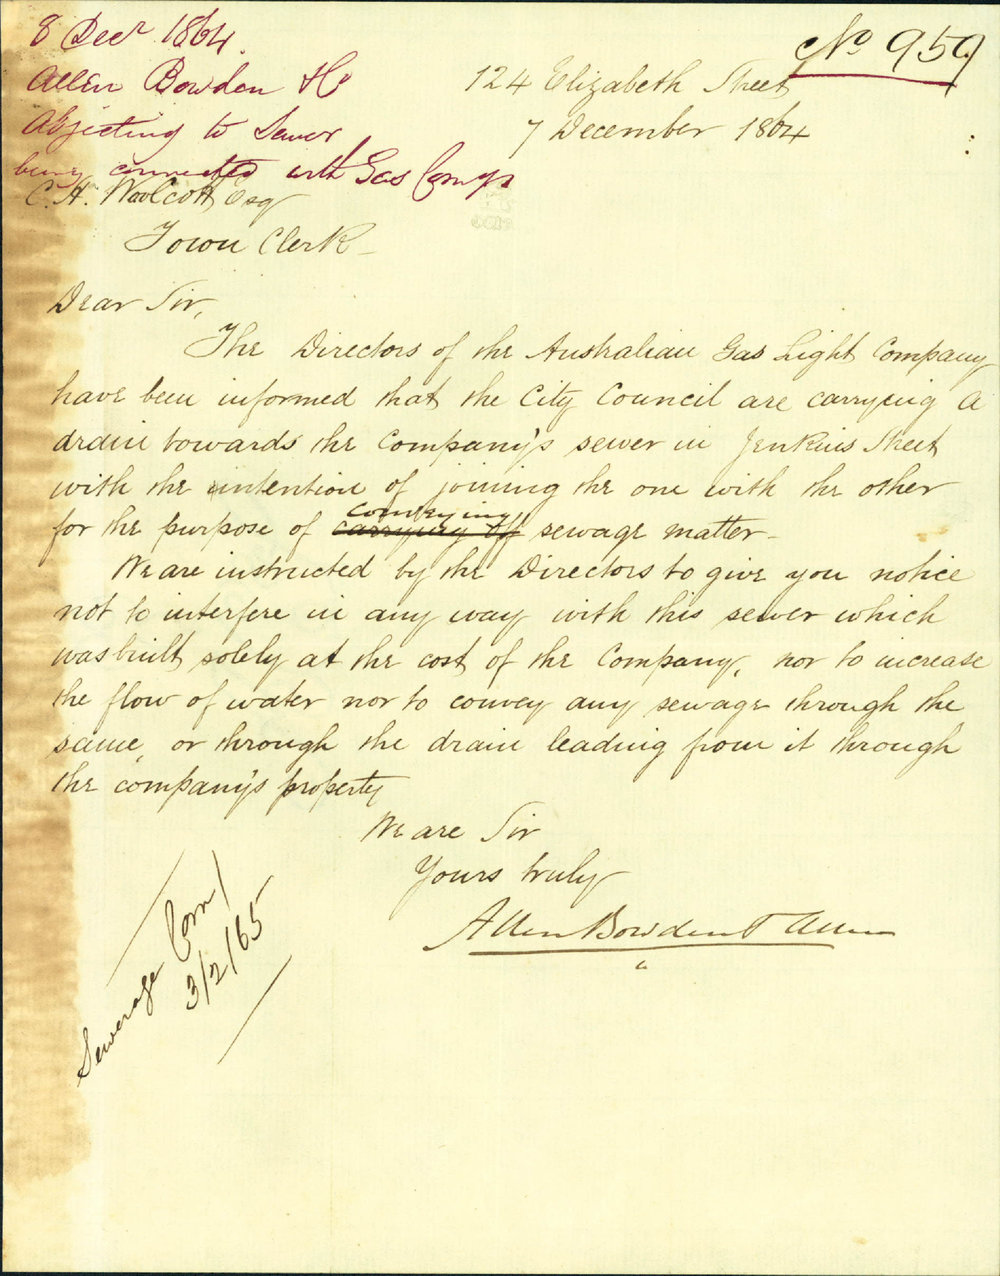 8 Decr 1864.
Allen Bowden & Co
Objecting to Sewer
being connected with Gas Compy
No 959
124 Elizabeth Street
7 December 1864
C. H. Woolcott Esq
Town Clerk
Dear Sir,
The Directors of the Australian Gas Light Company
have been informed that the City Council are carrying a
drain towards the Company's sewer in Jenkins Street
with the intention of joining the one with the other
for the purpose of carrying off conveying sewage matter
We are instructed by the Directors to give you notice
not to interfere in any way with this sewer which
was built solely at the cost of the Company, nor to increase
the flow of water nor to convey any sewage through the
same, or through the drain leading from it through
the company's property
We are Sir
Yours truly
Allen Bowden & Allen
Sewerage Com/
3/2/65